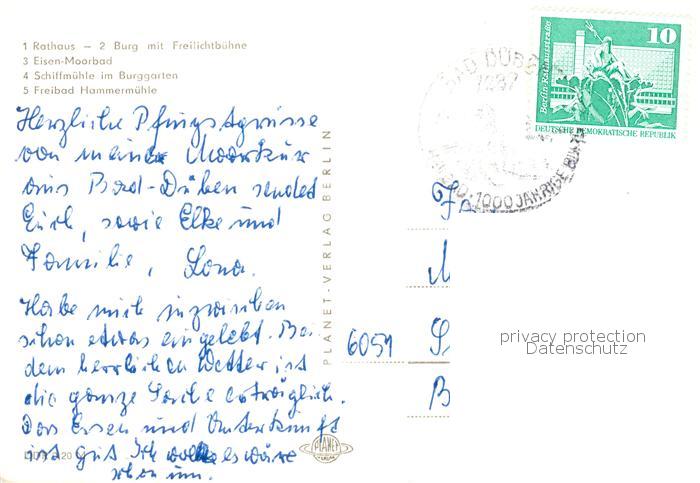 1 Rathaus – 2 Burg mit Freilichtbühne
3 Eisen-Moorbad
4 Schiffmühle im Burggarten
5 Freibad Hammermühle
Herzliche Pfingstgrüsse
von meiner Moorkur
aus Bad-Düben sendet
Euch, sowie Elke und
Familie, Lona.
Habe mich inzwischen
schon etwas eingelebt. Bei
dem herrlichen Wetter ist
die ganze Sache erträglich.
Das Essen und Unterkunft
ist gut Ich es wäre
schon um.
PLANET-VERLAG BERLIN
PLANET
VERLAG
BAD DÜB
1000 JÄHRIGE BUR
10
Berlin, Rathausstraße
DEUTSCHE DEMOKRATISCHE REPUBLIK
Fa
M
6051 S
B
privacy protection
Datenschutz